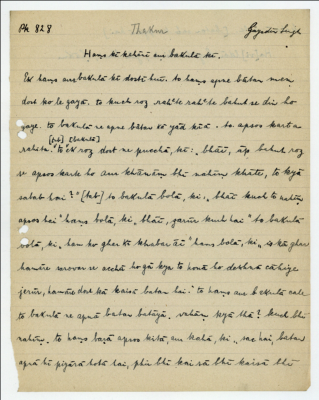 Ph 828 Thakur Gajadhar Singh
Haṃs kā kahānī aur bakulā kā.
Ek haṃs aur bakulā kā dostī huī. to haṃs apne batan meṃ
dost ko le gayā. to kuch roz rahte rahte bahut se din ho
gaye. to bakulā ne apne batan kā yād kiyā. to apsos kartā
rahtā. [to] [bakulā] "to ek roz dost ne puchā, ki: bhāī, āp bahut roz
se apsos karte ho aur khānā bhī nahīṃ khāte, to kyā
sabab hai?" [tab] to bakulā bolā, ki: „bhāī kuch to nahīṃ
apsos hai" haṃs bolā, ki „bhāī, jarūr kuch hai" to bakulā
bolā, ki „ham ko ghar kā khabar āī" haṃs bolā, ki „is kā ghar
hamāre sarovar se acchā hogā kyā to honā ho dekhnā cāhiye
jarūr, hamāre dost kā kaisā batan hai." to haṃs aur bakulā cale
to bakulā ne apnā batan batāyā. vahāṃ kyā thā? kuch bhī
nahīṃ. to haṃs baṛā apsos kiyā, aur kahā, ki „sac hai, batan
apnā hī piyārā hotā hai, phir bhī kaisā bhī kaisā bhī